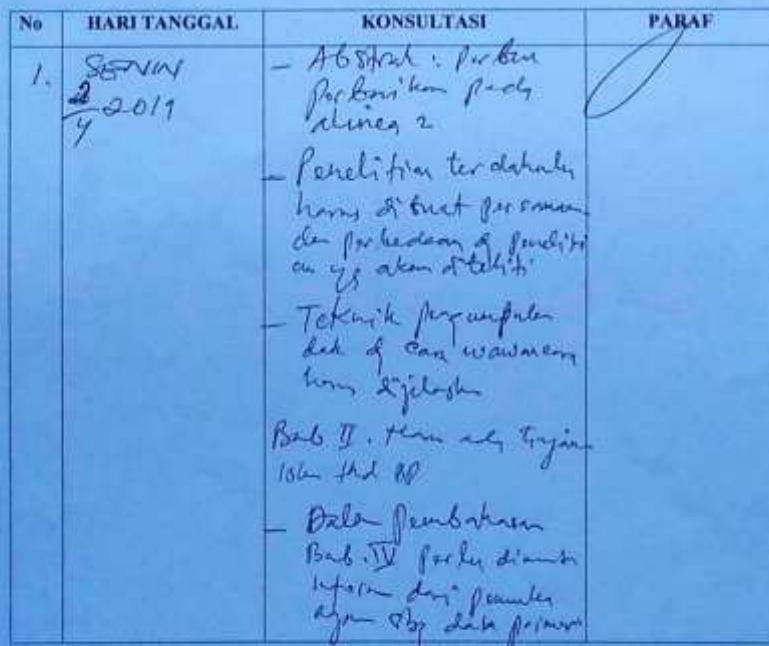 No HARI TANGGAL KONSULTASI PARAF
1. SENIN
2/4-2019
- Abstrak : perlu
perbaikan pada
alinea 2
- Penelitian terdahulu
harus dibuat persamaan
dan perbedaan dg peneliti
an yg akan diteliti
- Teknik pengumpulan
data dg cara wawancara
harus dijelaskan
Bab II. Harus ada tinjauan
Islam thd
- Dalam pembahasan
Bab. IV perlu
informasi dari pemuka
agama sbg data primer